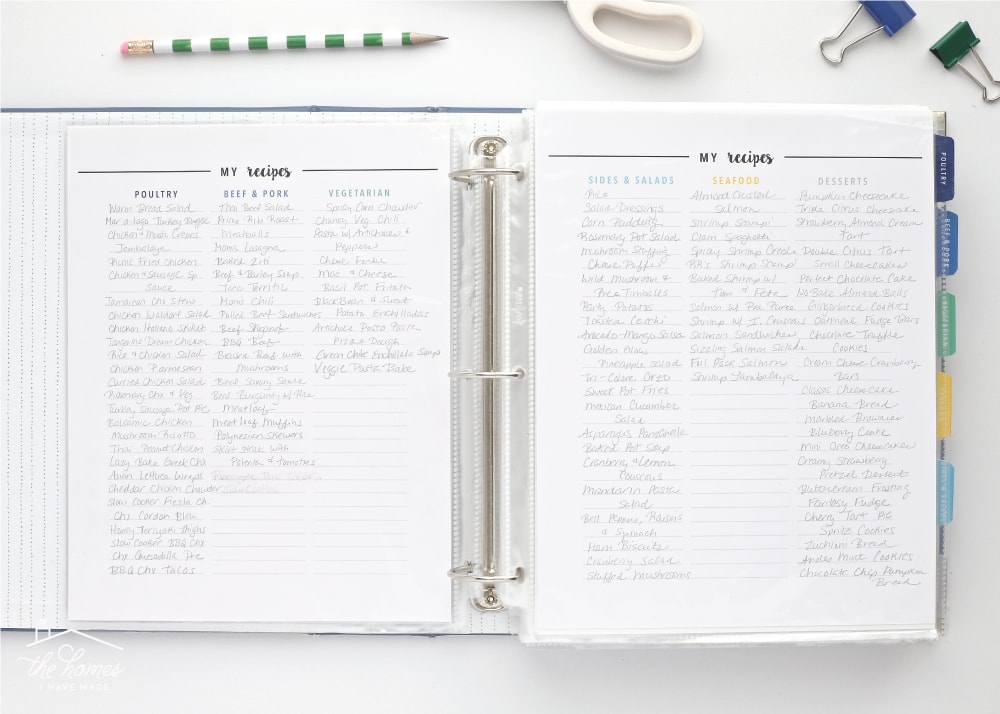 MY recipes
POULTRY
Warm Bread Salad
Mar-a-lago Turkey Burger
Chicken & Mush Crepes
Jambalaya
Picnic Fried Chicken
Chicken & Sausage Sp.
Sauce
Jamaican Chx Stew
Chicken Waldorf Salad
Chicken Havana Skillet
Tangerine Dream Chicken
Rice & Chicken Salad
Chicken Parmesan
Curried Chicken Salad
Rosemary Chx & Veg
Turkey Sausage Pot Pie
Balsamic Chicken
Mushroom Risotto
Thai Peanut Chicken
Lazy Bake Greek Chx
Asian Lettuce Wraps
Cheddar Chicken Chowder
Slow Cooker Fiesta Ch.
Chx Cordon Bleu
Honey Teriyaki Thighs
Slow Cooker BBQ Chx
Chx Quesadilla Pie
BBQ Chx Tacos
BEEF & PORK
Thai Beef Salad
Prime Rib Roast
Meatballs
Mom's Lasagna
Baked Ziti
Beef & Barley Soup
Taco Terrific
Mom's Chili
Pulled Beef Sandwiches
Beef
BBQ Beef
with
Mushrooms
Beef Savory Sauce
Beef w/ Rice
Meatloaf
Meat loaf Muffins
Polynesian Skewers
Skirt Steak with
Polenta & Tomatoes
VEGETARIAN
Spicy Corn Chowder
Chunky Veg Chili
Pasta w/ Artichokes &
Peppers
Cheese
Mac & Cheese
Basil Pot Fritata
Black Bean & Sweet
Potato Enchiladas
Artichoke Pasta
Pizza Dough
Green Chile Enchilada Soup
Veggie Pasta Bake
MY recipes
SIDES & SALADS
Rice
Salad Dressings
Corn Pudding
Rosemary Pot Salad
Mushroom Stuffing
Cheese Puffs
Wild Mushroom &
Rice Timbales
Party Potatos
Avocado-Mango Salsa
Golden
Pineapple Salad
Tri-Colore Orzo
Sweet Pot Fries
Mexican Cucumber
Salad
Asparagus Panzanella
Baked Pot Soup
Cranberry & Lemon
Couscous
Mandarin Pasta
Salad
Bell Peppers, Raisins
& Spinach
Ham Biscuits
Cranberry Salad
Stuffed Mushrooms
SEAFOOD
Almond Crusted
Salmon
Shrimp Scampi
Clam Spaghetti
Spicy Shrimp Creole
BR's Shrimp Scampi
Baked Shrimp w/
Tom & Feta
Salmon w/ Pea Puree
Shrimp w/ I. Couscous
Salmon Sandwiches
Sizzling Salmon Salad
Foil Pack Salmon
Shrimp Jambalaya
DESSERTS
Pumpkin Cheesecake
Triple Citrus Cheesecake
Strawberry Almond Cream
Tart
Double Citrus Tart
Small Cheesecakes
Perfect Chocolate Cake
No Bake Almond Balls
Gingerbread Cookies
Oatmeal Fudge Bars
Chocolate Truffle
Cookies
Cream Cheese Cranberry
Bars
Classic Cheesecake
Banana Bread
Marbled Brownies
Blueberry Cake
Mini Oreo Cheesecakes
Creamy Strawberry
Pretzel Dessert
Buttercream Frosting
Fantasy Fudge
Cherry Tart Pie
Spritz Cookies
Zuchinni Bread
Andes Mint Cookies
Chocolate Chip Pumpkin
Bread
POULTRY
BEEF & PORK
VEGETARIAN
the homes
I HAVE MADE